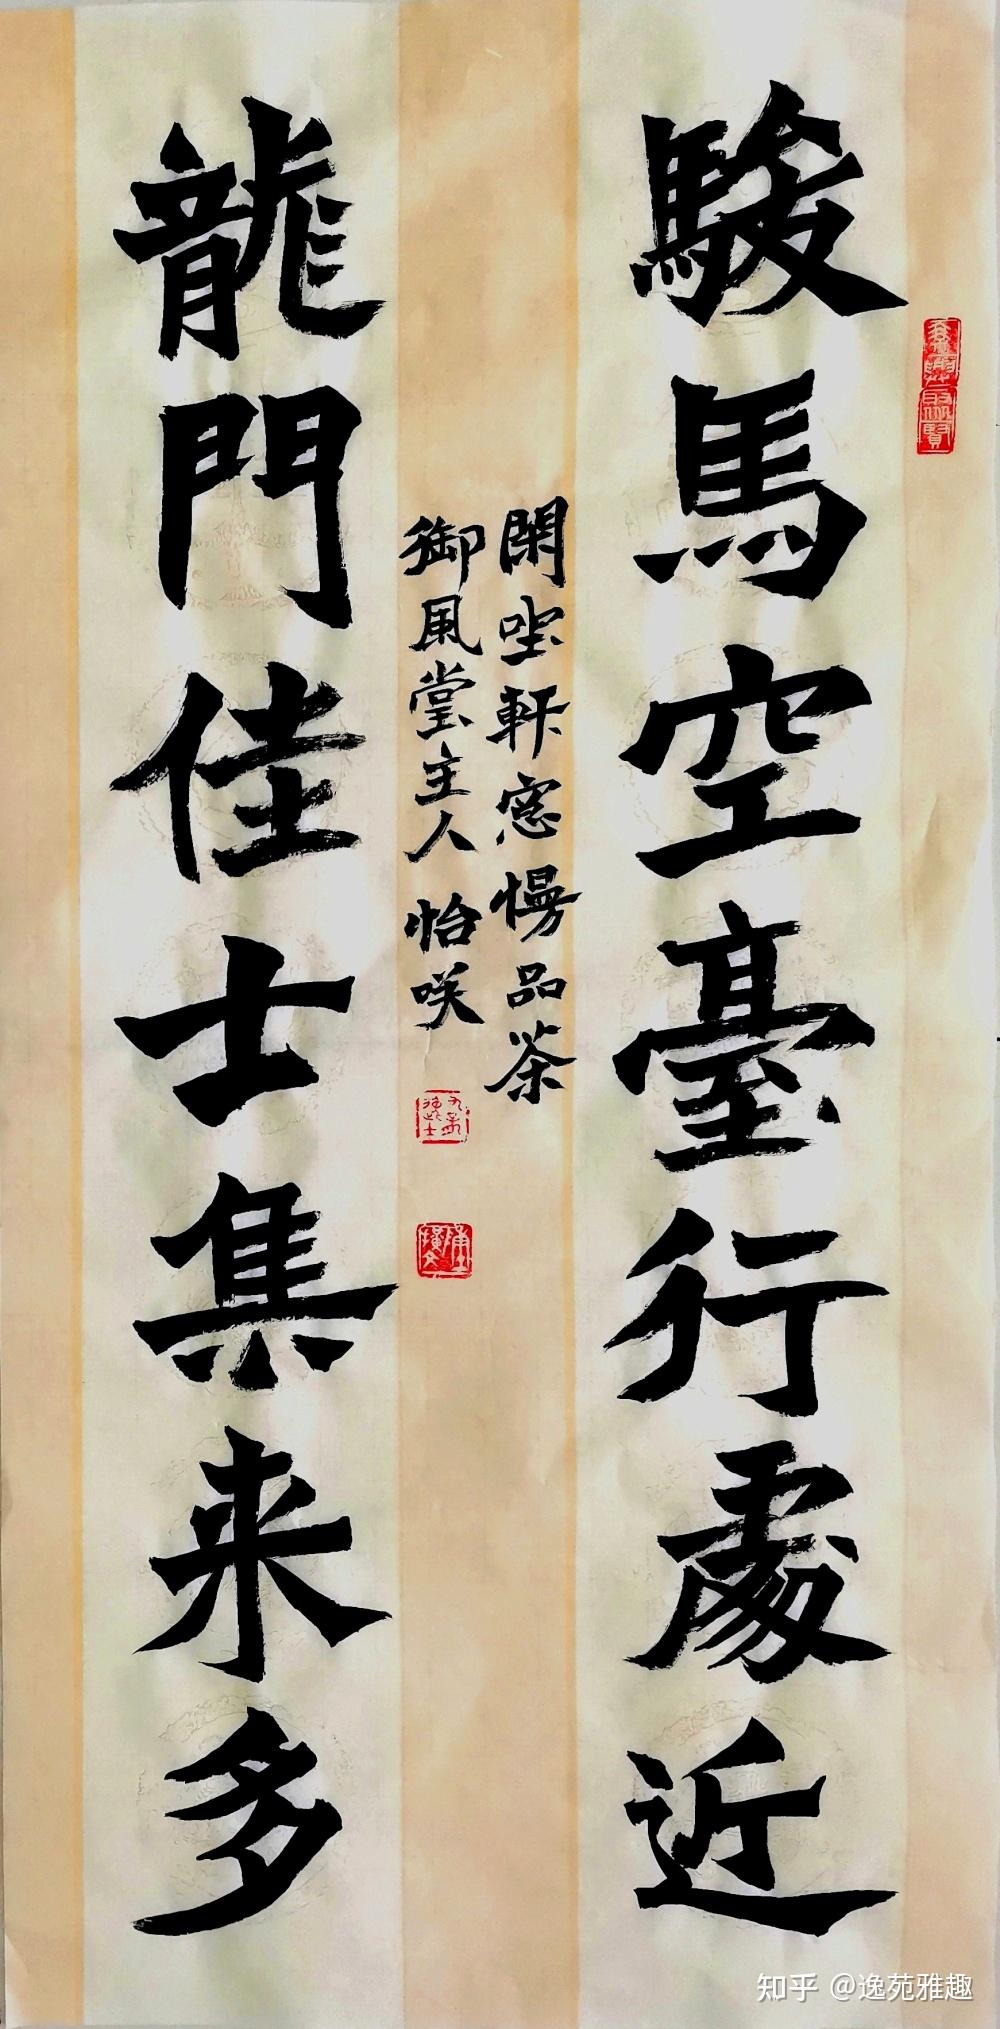 駿馬空臺行處近
閑坐軒窓慢品茶
御風堂主人怡咲
龍門佳士集来多
知乎 @逸苑雅趣